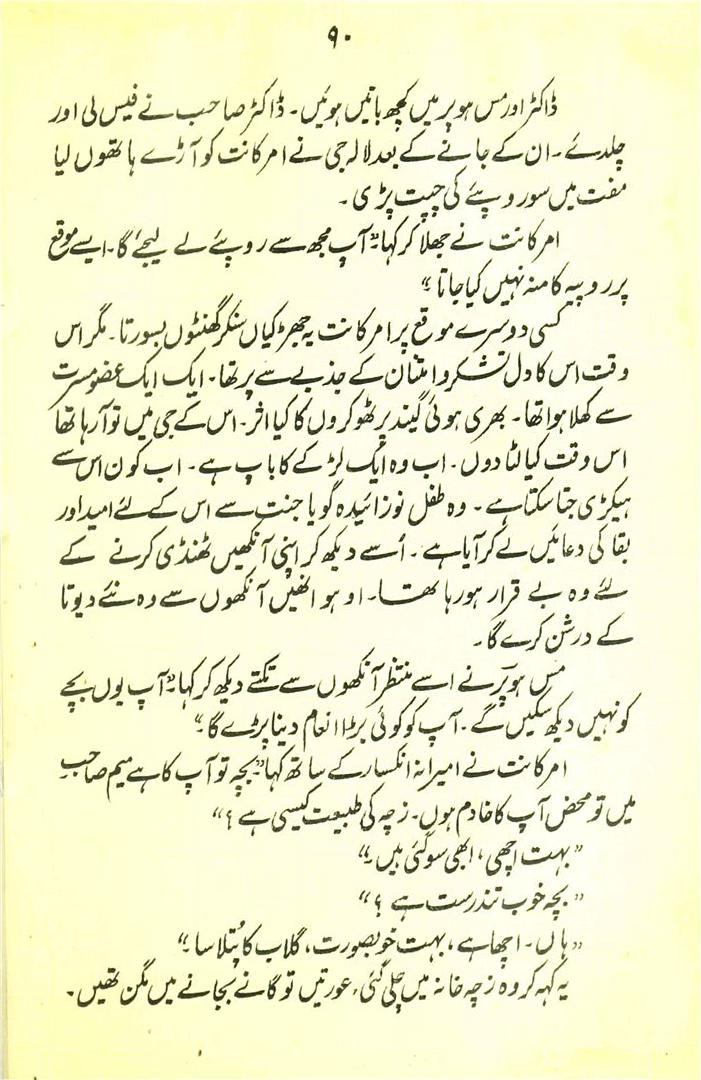 ۹۰
ڈاکٹر اور مس ہوپر میں کچھ باتیں ہوئیں۔ ڈاکٹر صاحب نے فیس لی اور
چلدئے۔ ان کے جانے کے بعد لالہ جی نے امرکانت کو آڑے ہاتھوں لیا
مفت میں سو روپئے کی چپت پڑی۔
امرکانت نے جھلا کر کہا۔”آپ مجھ سے روپئے لے لیجئے گا۔ ایسے موقع
پر روپیہ کا منہ نہیں کیا جاتا“
کسی دوسرے موقع پر امرکانت یہ جھڑکیاں سنکر گھنٹوں بسورتا۔ مگر اس
وقت اس کا دل تشکر و امتنان کے جذبے سے پر تھا۔ ایک ایک عضو مسرت
سے کھلا ہوا تھا۔ بھری ہوئی گیند پر ٹھوکروں کا کیا اثر۔ اس کے جی میں تو آرہا تھا
اس وقت کیا لٹا دوں۔ اب وہ ایک لڑکے کا باپ ہے۔ اب کون اس سے
ہیکڑی جتا سکتا ہے۔ وہ طفل نوزائیدہ گویا جنت سے اس کے لئے امید اور
بقا کی دعائیں لے کر آیا ہے۔ اُسے دیکھ کر اپنی آنکھیں ٹھنڈی کرنے کے
لئے وہ بے قرار ہو رہا تھا۔ اوہو انھیں آنکھوں سے وہ نئے دیوتا
کے درشن کرے گا۔
مس ہوپر نے اسے منتظر آنکھوں سے تکتے دیکھ کر کہا۔”آپ یوں بچے
کو نہیں دیکھ سکیں گے۔ آپ کو کوئی بڑا انعام دینا پڑے گا۔“
امرکانت نے امیرانہ انکسار کے ساتھ کہا”بچہ تو آپ کا ہے میم صاحب
میں تو محض آپ کا خادم ہوں۔ زچہ کی طبیعت کیسی ہے؟“
”بہت اچھی، ابھی سو گئی ہیں۔“
”بچہ خوب تندرست ہے؟“
”ہاں۔ اچھا ہے، بہت خوبصورت، گلاب کا پُتلا سا۔“
یہ کہہ کر وہ زچہ خانہ میں چلی گئی، عورتیں تو گانے بجانے میں مگن تھیں۔